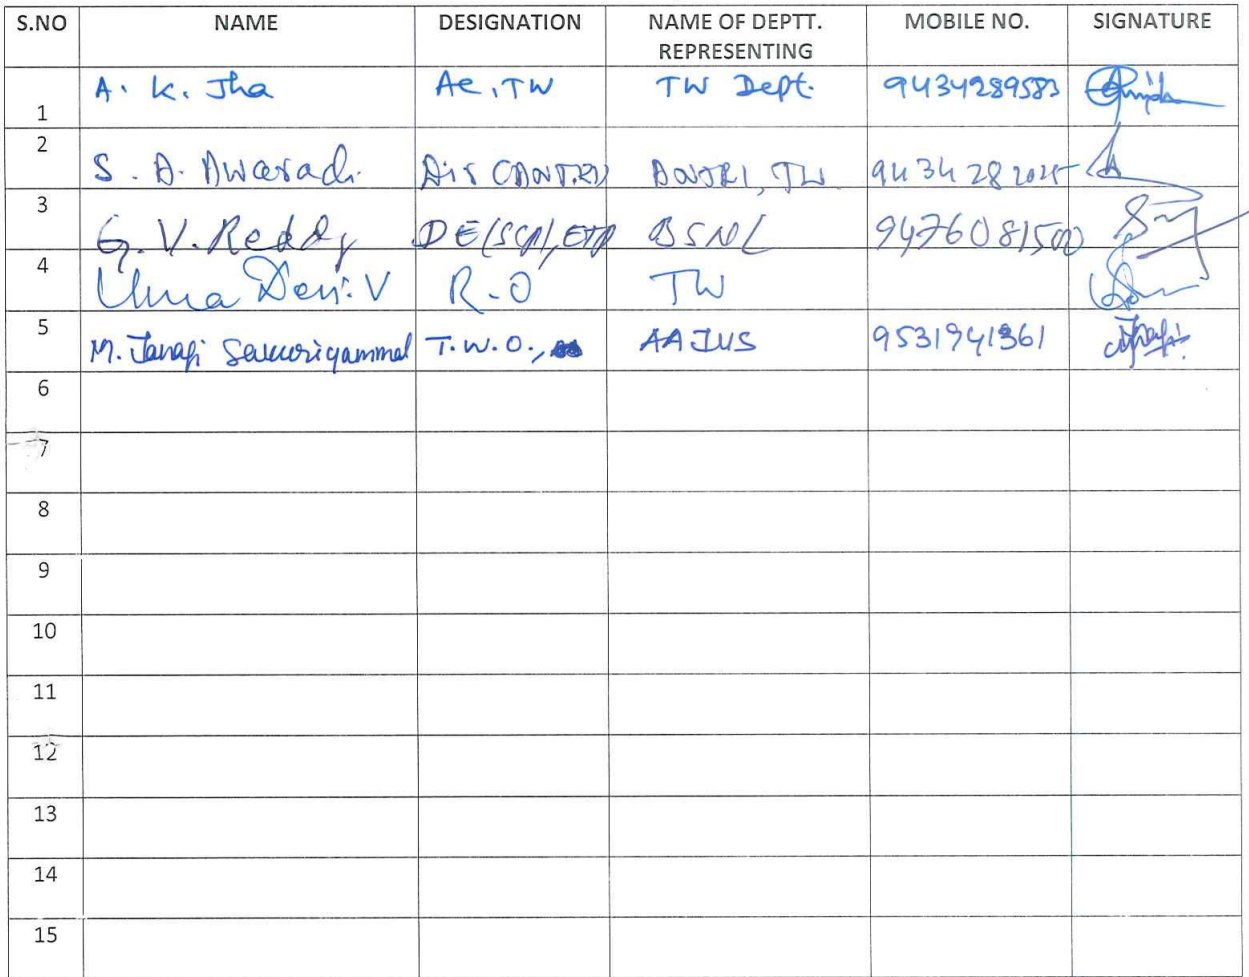 S.NO NAME DESIGNATION NAME OF DEPTT. REPRESENTING MOBILE NO. SIGNATURE
1 A. K. Jha AC, TW TW Dept. 9434289583
2 S. A. Awaradi. TW 9434282025
3 G. V. Reddy BSNL 9476081500
4 Uma Devi. V R.O TW
5 M. Janagi Savuriyammal T.W.O., AAJVS 9531941361
6
7
8
9
10
11
12
13
14
15